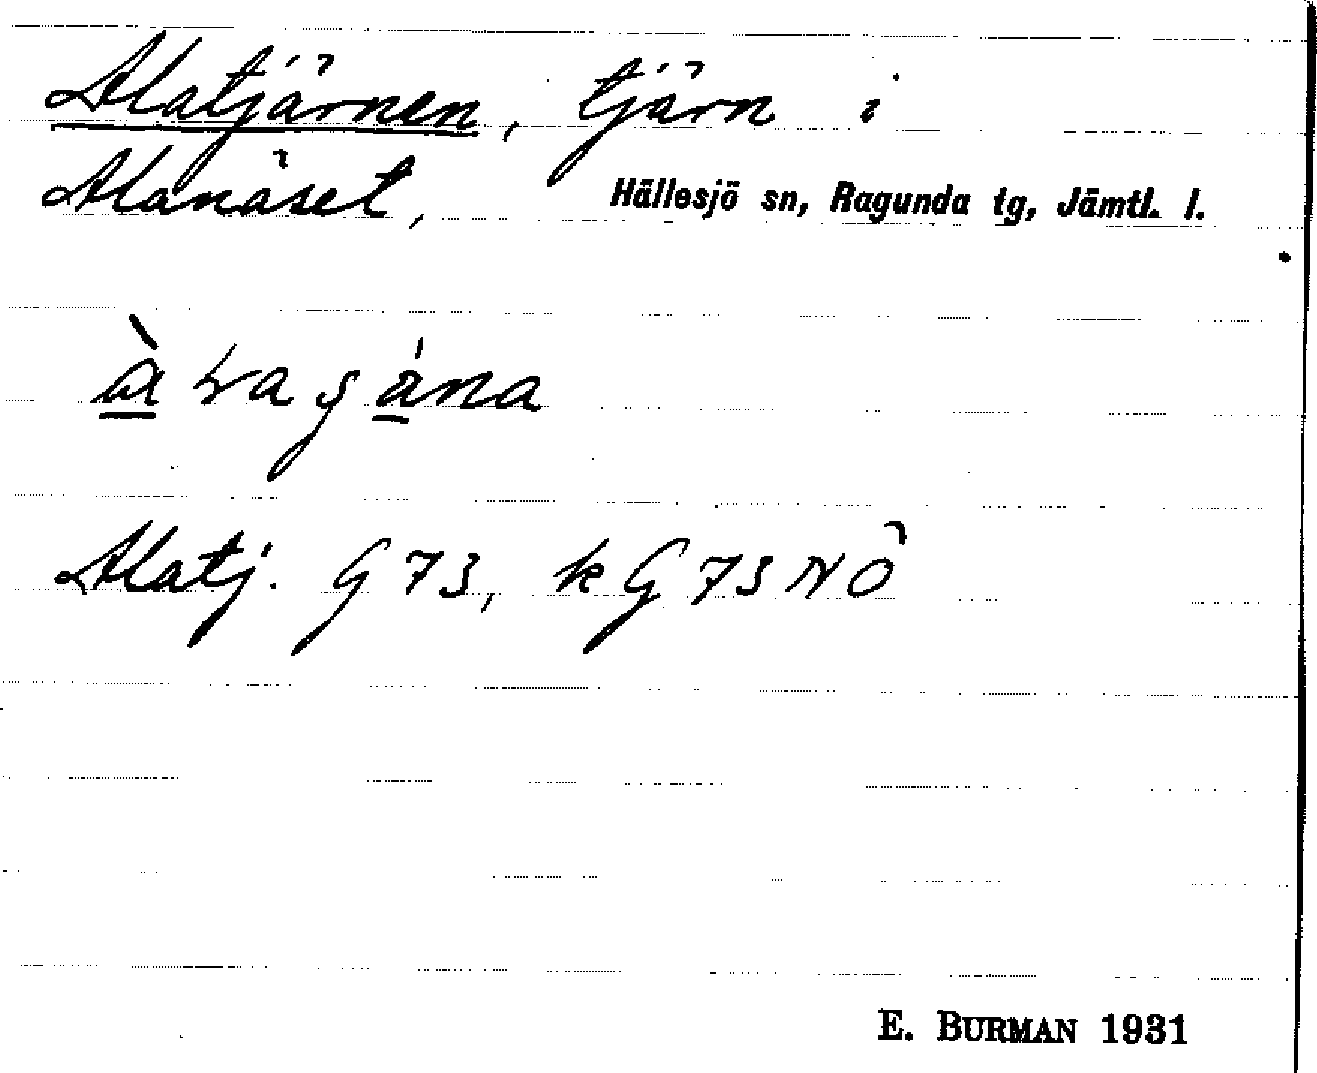 Alatjärnen, tjärn i
Alanäset, Hällesjö sn, Ragunda tg, Jämtl. l.
Alatj. G73, kG73NÖ
E. BURMAN 1931